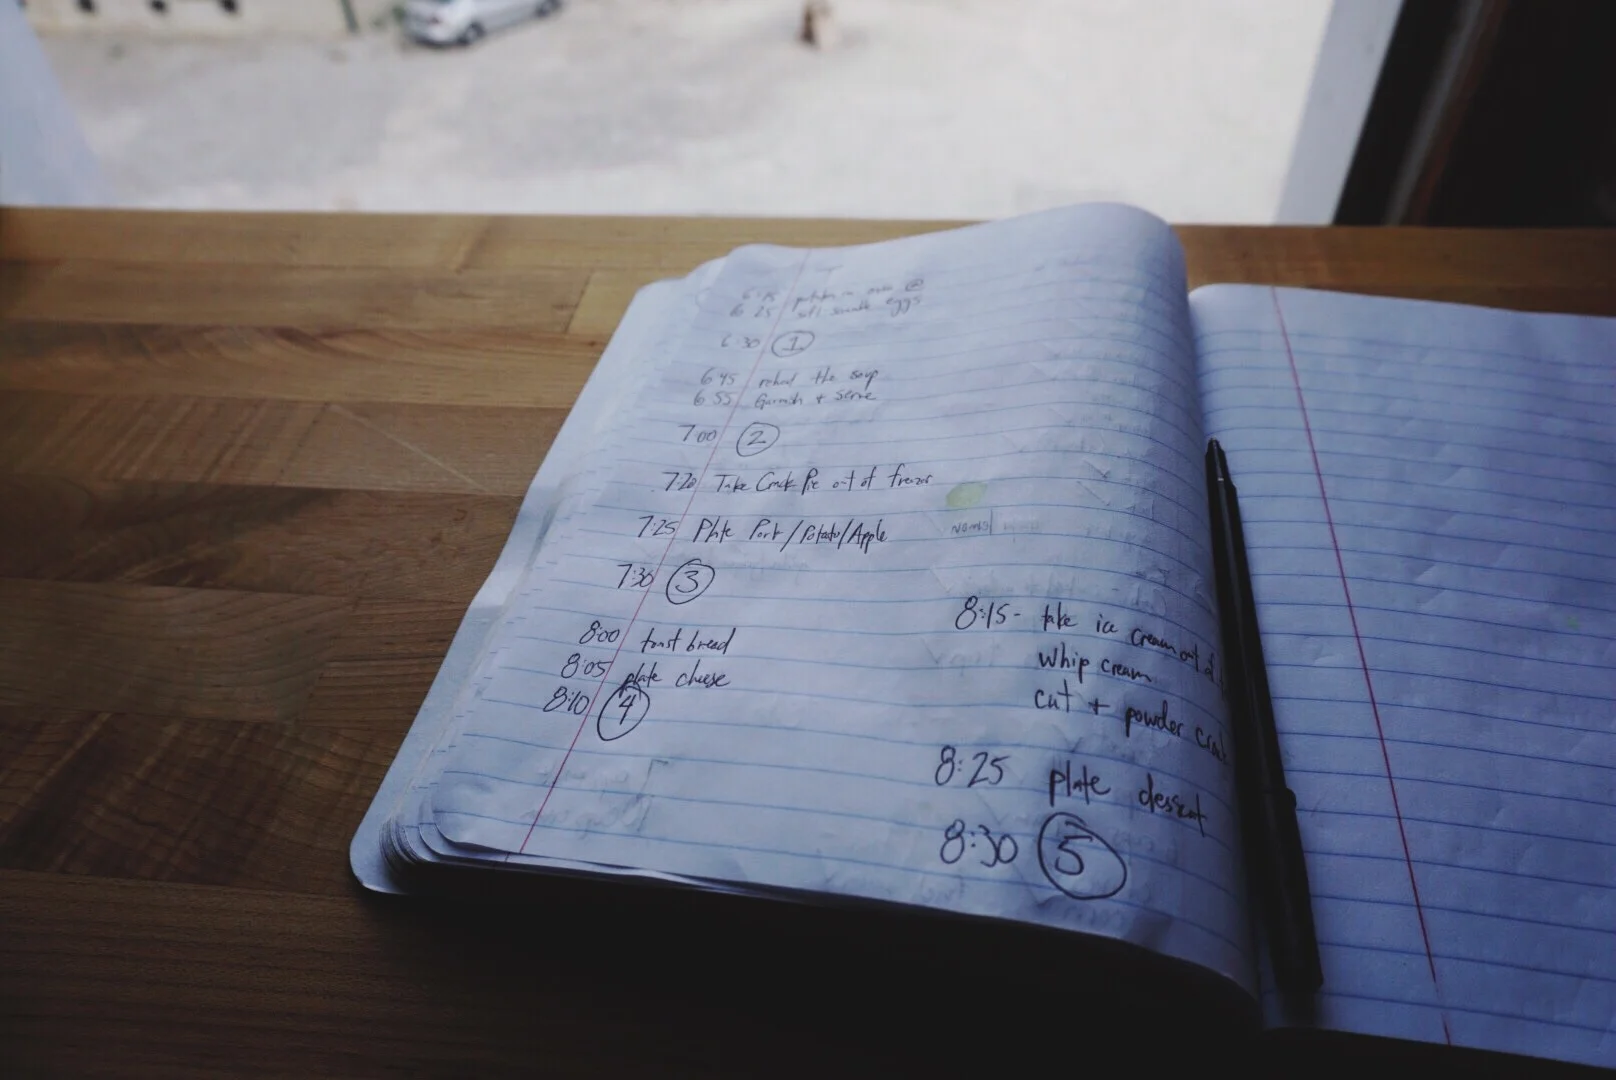 6:15 potatoes in oven @
6:25 soft scramble eggs
6:30 1
6:45 reheat the soup
6:55 Garnish + serve
7:00 2
7:20 Take Crack Pie out of freezer
7:25 Plate Pork/Potato/Apple
7:30 3
8:00 toast bread
8:05 plate cheese
8:10 4
8:15- take ice cream out of
whip cream
cut + powder crack
8:25 plate dessert
8:30 5